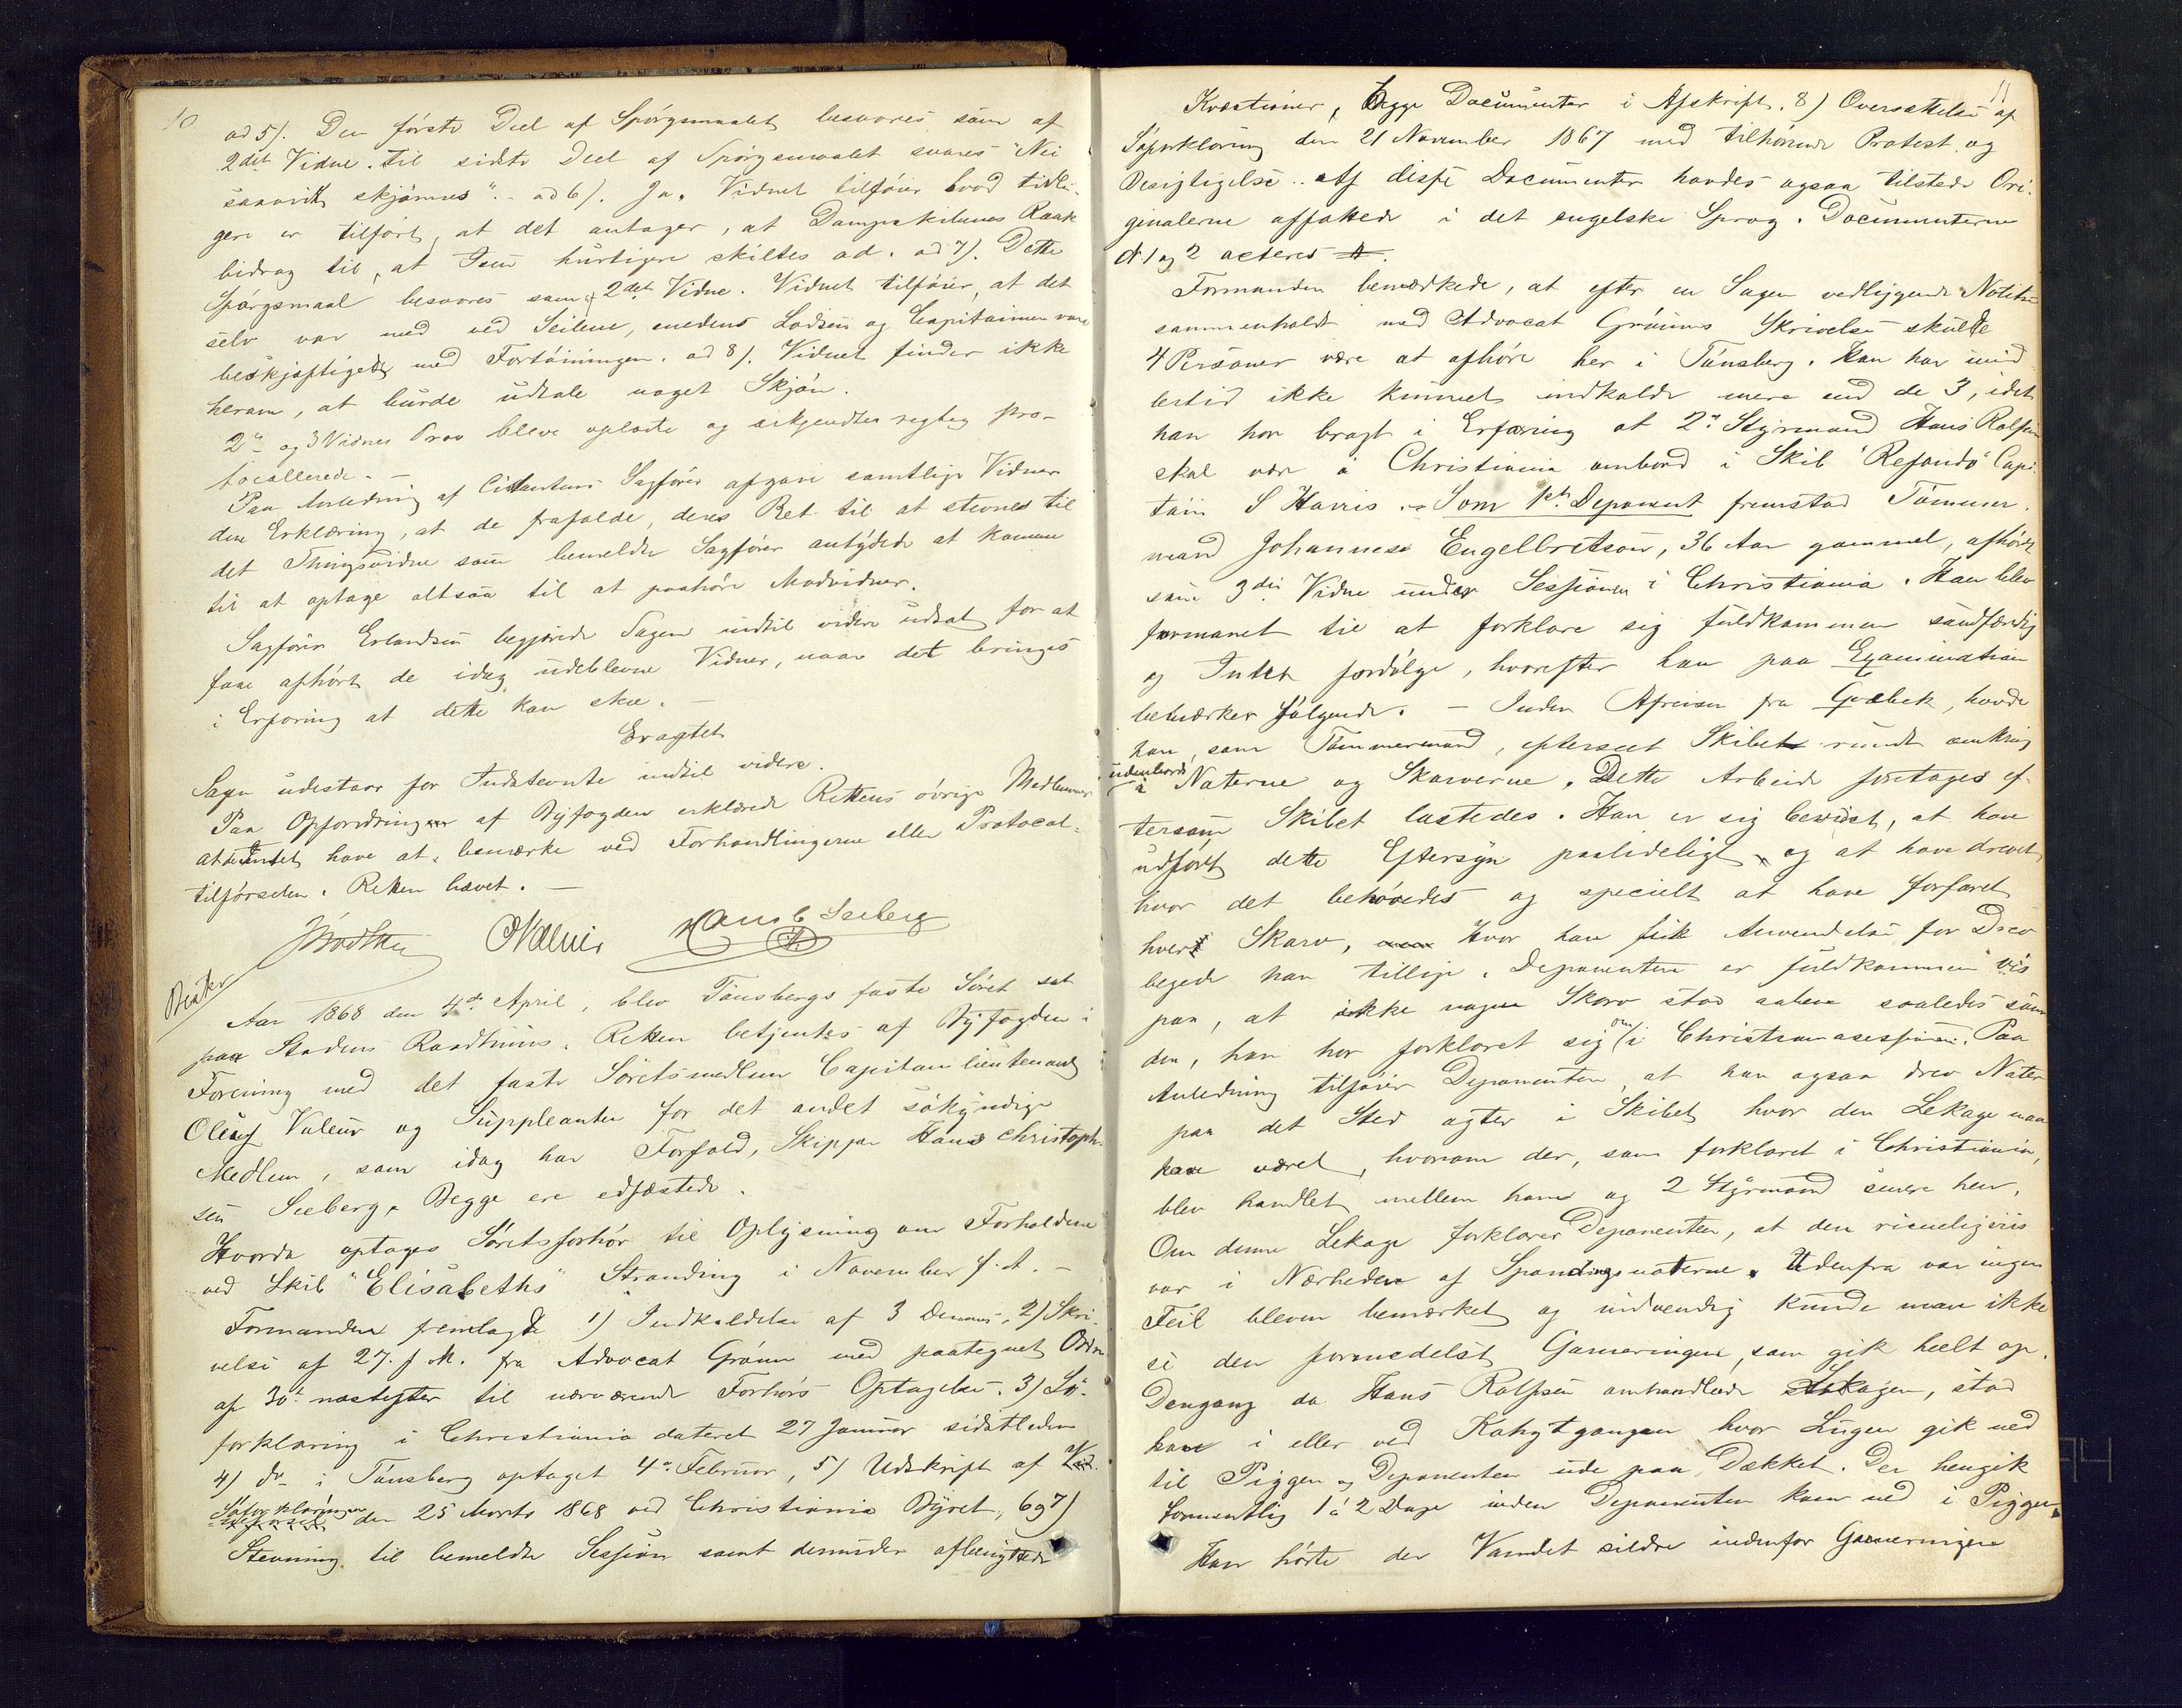 10
ad 5). Den første Deel af Spørgsmaalet besvares som af
2det Vidne. Til sidste Deel af Spørgsmaalet svares "Nei
saavidt skjønnes". - ad 6). Ja. Vidnet tilføier hvad tidli-
gere er tilført, at det antager, at Dampskibenes Raak
bidrog til, at Isen hurtigere skiltes ad. ad 7). Dette
Spørgsmaal besvares som af 2det Vidne. Vidnet tilføier, at det
selv var med ved Seilene, medens Lodsen og Capitainen vare
beskjæftigede med Fortøiningen. ad 8). Vidnet finder ikke
herom, at burde udtale noget Skjøn.
2det og 3 Vidnes Prov bleve oplæste og vedkjendtes rigtig pro-
tocollerede. -
Paa Anledning af Citantens Sagfører afgave samtlige Vidner
den Erklæring, at de frafalde deres Ret til at stevnes til
det Thingsvidne som bemeldte Sagfører antydede at komme
til at optage altsaa til at paahøre Modvidner.
Sagfører Erlandsen begjærede Sagen indtil videre udsat for at
faae afhørt de idag udeblevne Vidner, naar det bringes
i Erfaring at dette kan skee. -
Eragtet
Sagen udestaar for Indstevnte indtil videre.
Paa Opfordringen af Byfogden erklærede Rettens øvrige Medlemmer
at de Intet have at bemærke ved Forhandlingerne eller Protocol-
tilførselen. Retten hævet. -
OValeur Hans C Seeberg
Beskr
Aar 1868 den 4de April, blev Tønsbergs faste Søret sat
paa Stadens Raadhuus. Retten betjentes af Byfogden i
Forening med det faste Søretsmedlem Capitainlieutenant
Oluf Valeur og Suppleanten for det andet søkyndige
Medlem, som idag har Forfald, Skipper Hans Christoph-
sen Seeberg. Begge ere edfæstede.
Hvorda optoges Søretsforhør til Oplysning om Forholdene
ved Skib "Elisabeths" Stranding i November f. A. -
Formanden fremlagde 1) Indkaldelse af 3 Dennes, 2) Skri-
velse af 27. f. M. fra Advocat Grønn med paategnet Ordre
af 30te næstefter til nærværende Forhørs Optagelse. 3) Sø-
forklaring i Christiania dateret 27 Januar sidstleden
4) do i Tønsberg optaget 4de Februar, 5) Udskrift af
Søforklaringen den 25 Marts 1868 ved Christiania Byret, 6 og 7)
Stevning til bemeldte Session samt derunder aflevgtede
11
Kvæstioner, begge Documenter i Afskrift. 8) Oversættelse af
Søforklaring den 21 November 1867 med tilhørende Protest og
Besigtigelse. Af disse Documenter havdes ogsaa tilstede Ori-
ginalerne affattede i det engelske Sprog. Documenterne
N 1 og 2 acteres
Formanden bemærkede, at efter en Sagen vedliggende Notitse
sammenholdt med Advocat Grønns Skrivelse skulde
4 Personer være at afhøre her i Tønsberg. Han har imid-
lertid ikke kunnet indkalde mere end de 3, idet
han har bragt i Erfaring at 2den Styrmand Hans Rolfsen
skal være i Christiania ombord i Skib "Refondo" Capi-
tain S Harris. - Som 1ste Deponent fremstod Tømmer-
mand Johannes Engelbretsen, 36 Aar gammel, afhørt
som 3die Vidne under Sessionen i Christiania. Han blev
formanet til at forklare sig fuldkommen sandfærdig
og Intet fordølge, hvorefter han paa Examination
bemærker følgende. - Inden Afreisen fra Qvebek, havde
han, som Tømmermand, efterseet Skibet rundt omkring
udenbords
i Naterne og Skarverne. Dette Arbeide foretages ef-
tersom Skibet lastedes. Han er sig bevidst, at have
udført dette Eftersyn paalideligt og at have drevet
hvor det behøvedes og specielt at have forfaret
hver Skarv, Hvor han fik Anvendelse for Drev
begede han tillige. Deponenten er fuldkommen vis
paa, at ikke nogen Skarv stod aaben saaledes som
den, han har forklaret sig om i Christianiasessionen. Paa
Anledning tilføier Deponenten, at han ogsaa drev Nater
paa det Sted agter i Skibet hvor den Lekage maa
have været, hvorom der, som forklaret i Christiania,
blev handlet mellem ham og 2 Styrmand senere hen.
Om denne Lekage forklarer Deponenten, at den rimeligviis
var i Nærheden af Spandingsnaterne. Udenfra var ingen
Feil bleven bemærket og indvendig kunde man ikke
se den formedelst Garneringen, som gik heelt op.
Dengang da Hans Rolfsen omhandlede Lekagen, stod
han i eller ved Kahytgangen hvor Lugen gik ned
til Piggen og Deponenten ude paa Dækket. Der hengik
formentlig 1 á 2 Dage inden Deponenten kom ned i Piggen.
Han hørte der Vandet sildre indenfor Garneringen